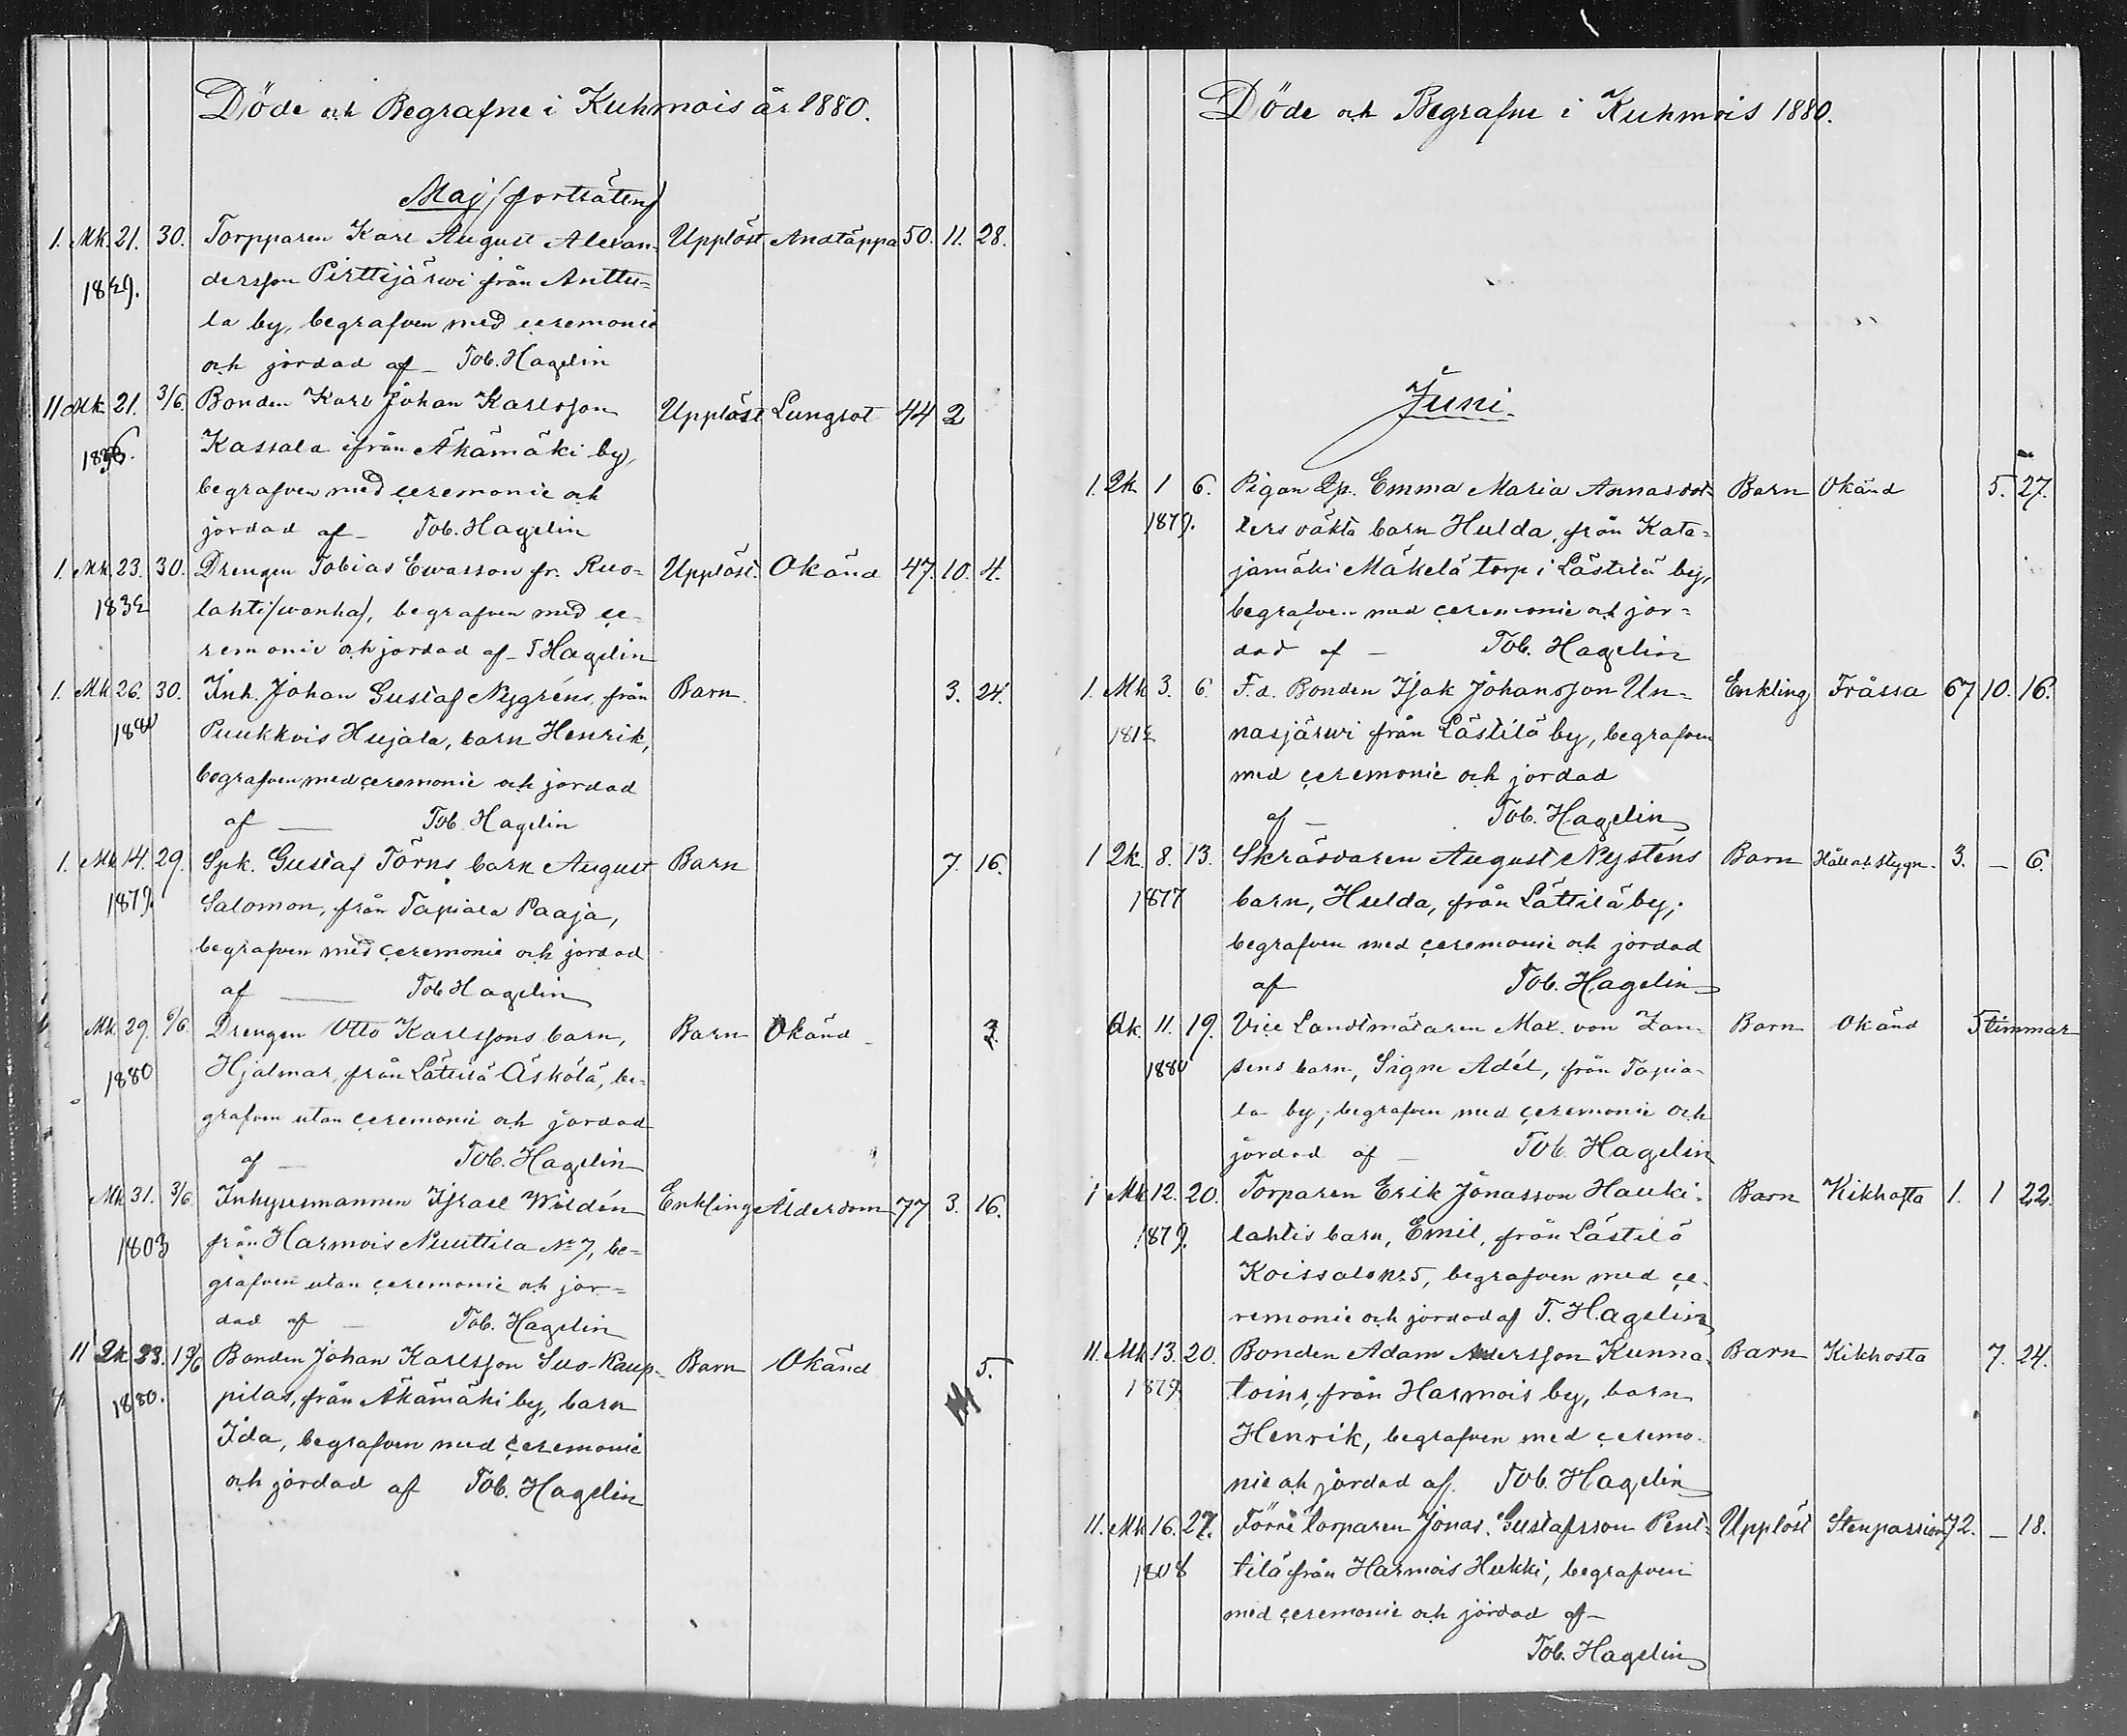 Döde och Begrafne i Kuhmois år 1880.
Maj (fortsätng)
1. Mk. 21. 30. Torpparen Karl August Alexan- Upplöst Andtäppa 50. 11. 28.
1829. dersson Pirttijärwi från Anttu-
la by, begrafven med ceremonie
och jordad af – Tob. Hagelin
11 Mk 21. 3/6. Bonden Karl Johan Karlsson Upplöst Lungsot 44 2
Kassala ifrån Äkämäki by,
begrafven med ceremonie och
jordad af – Tob. Hagelin
1. Mk. 23. 30. Drengen Tobias Ewasson fr. Ruo- Upplöst. Okänd 47. 10. 4.
1832 lahti (wanha), begrafven med ce-
remonie och jordad af – T Hagelin
1. Mk 26. 30. Inh. Johan Gustaf Nygréns, från Barn. 3. 24.
1880 Puukkois Hujala, barn Henrik,
begrafven med ceremonie och jordad
af — Tob. Hagelin
1. Mk 14. 29. Spk. Gustaf Törns barn August Barn 7. 16.
1879. Salomon, från Tapiala Paaja,
begrafven med ceremonie och jordad
af — Tob Hagelin
Mk. 29. 6/6. Drengen Otto Karlssons barn, Barn Okänd – 3.
1880 Hjalmar, från Lästilä Äskölä, be-
grafven utan ceremonie och jordad
af – Tob. Hagelin
Mk 31. 3/6. Inhysesmannen Israel Wildén Enkling Ålderdom 77 3. 16.
1803 från Harmois Nuuttila No 7, be-
grafven utan ceremonie och jor-
dad af — Tob. Hagelin
11 Qk 23. 13/6 Bonden Johan Karlsson Suo-Kaup- Barn Okänd 5.
1880. pilas, från Äkämäki by, barn
Ida, begrafven med ceremonie
och jordad af Tob. Hagelin
Döde och Begrafne i Kuhmois 1880.
Juni.
1. Qk 1 6. Pigan Qp. Emma Maria Annasdot- Barn Okänd 5. 27.
1879. ters oäkta barn Hulda, från Kata-
jamäki Mäkelä torp i Lästilä by,
begrafven med ceremonie och jor-
dad af – Tob. Hagelin
1. Mk 3. 6. F.d. Bonden Isak Johansson Un- Enkling Frässa 67 10. 16.
1812 nasjärwi från Lästilä by, begrafven
med ceremonie och jordad
af – Tob. Hagelin
1 Qk. 8. 13. Skräddaren August Nysténs Barn Håll och stygn. 3. – 6.
1877 barn, Hulda, från Lättilä by,
begrafven med ceremonie och jordad
af Tob. Hagelin
Qk. 11. 19. Vice Landtmätaren Max. von Zan- Barn Okänd 5 timmar
1880 sens barn, Signe Adél, från Tapia-
la by, begrafven med ceremonie och
jordad af – Tob. Hagelin
1 Mk 12. 20. Torparen Erik Jonasson Hauki- Barn Kikhosta 1. 1 22.
1879. lahtis barn, Emil, från Lästilä
Koissalo No 5, begrafven med ce-
remonie och jordad af T. Hagelin
11. Mk. 13. 20. Bonden Adam Andersson Kunna- Barn Kikhosta 7. 24.
1879. toins, från Harmois by, barn
Henrik, begrafven med ceremo-
nie och jordad af. Tob. Hagelin
11. Mk 16. 27. Förre torparen Jonas Gustafsson Pent- Upplöst Stenpassion 72. – 18.
1808 tilä från Harmois Hukki, begrafven
med ceremonie och jordad af –
Tob. Hagelin